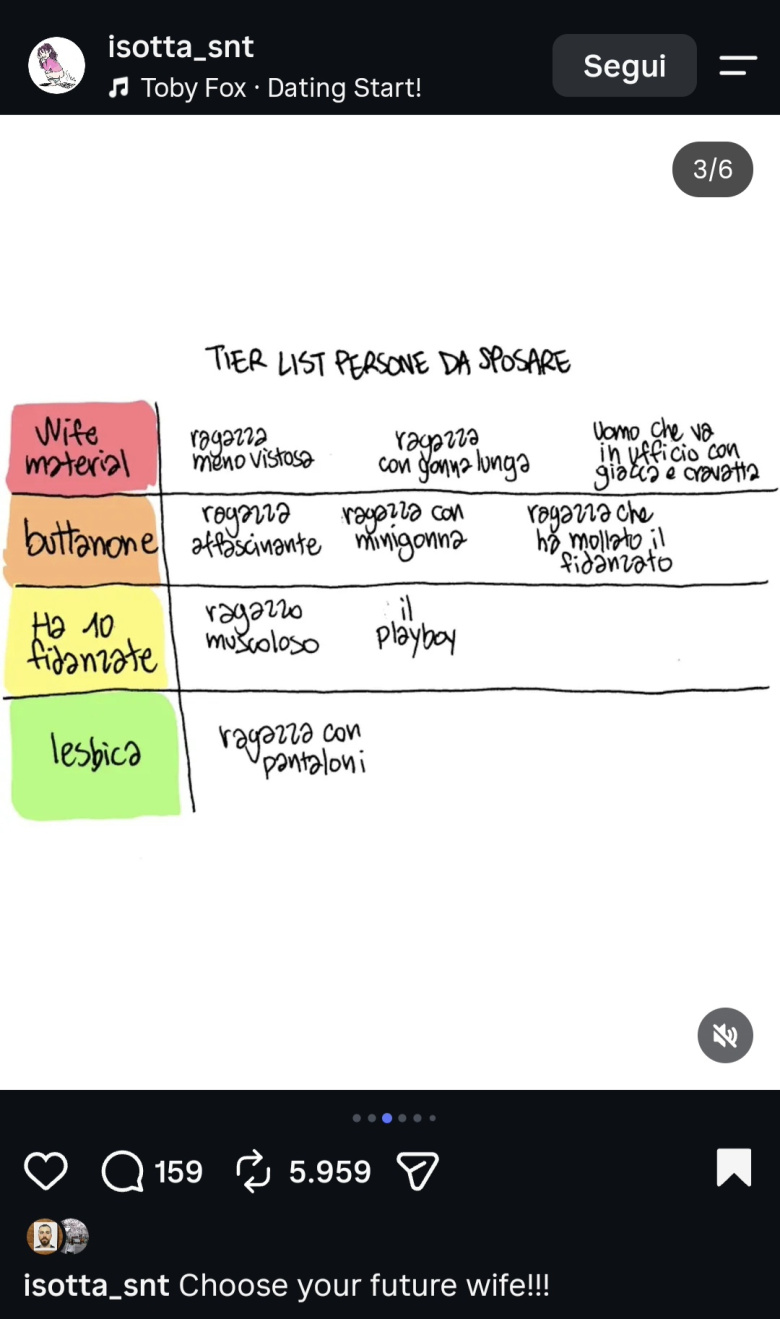 isotta_snt
Toby Fox · Dating Start!
Segui
3/6
TIER LIST PERSONE DA SPOSARE
Wife
material
ragazza
meno vistosa
ragazza
con gonna lunga
Uomo che va
in ufficio con
giacca e cravatta
buttanone
ragazza
affascinante
ragazza con
minigonna
ragazza che
ha mollato il
fidanzato
Ha 10
fidanzate
ragazzo
muscoloso
il
playboy
lesbica
ragazza con
pantaloni
159
5.959
isotta_snt Choose your future wife!!!